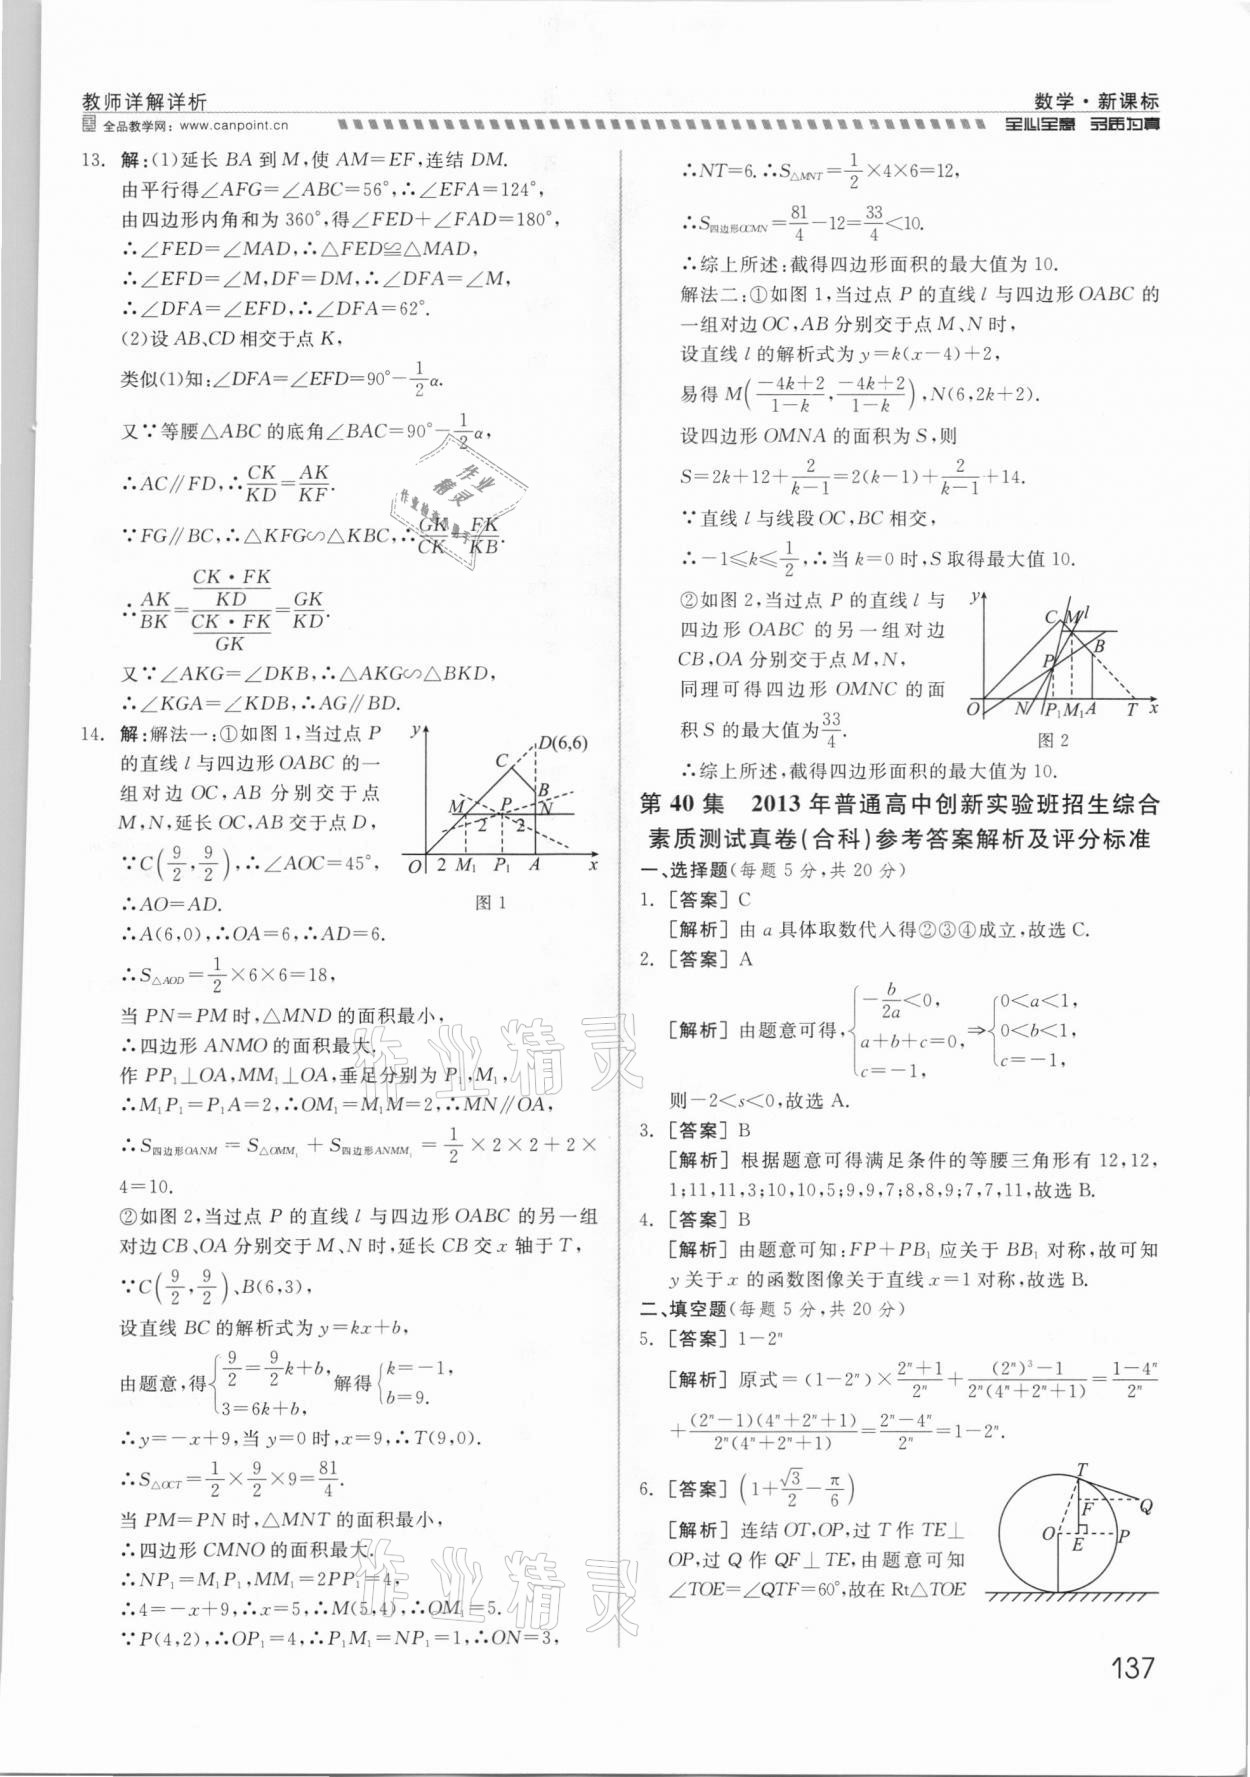 教师详解详析
全品教学网：www.canpoint.cn
数学·新课标
全心全意 夯质为真
13. 解:(1)延长 BA 到 M,使 AM=EF,连结 DM.
由平行得∠AFG=∠ABC=56°,∴∠EFA=124°,
由四边形内角和为 360°,得∠FED+∠FAD=180°,
∴∠FED=∠MAD,∴△FED≌△MAD,
∴∠EFD=∠M,DF=DM,∴∠DFA=∠M,
∴∠DFA=∠EFD,∴∠DFA=62°.
(2)设 AB、CD 相交于点 K,
类似(1)知:∠DFA=∠EFD=90°−1/2 α.
又∵等腰△ABC 的底角∠BAC=90°−1/2 α,
∴AC∥FD,∴CK/KD=AK/KF.
∵FG∥BC,∴△KFG∽△KBC,∴GK/CK=FK/KB.
∴AK/BK=(CK·FK/KD)/(CK·FK/GK)=GK/KD.
又∵∠AKG=∠DKB,∴△AKG∽△BKD,
∴∠KGA=∠KDB,∴AG∥BD.
14. 解:解法一:①如图 1,当过点 P
的直线 l 与四边形 OABC 的一
组对边 OC,AB 分别交于点
M、N,延长 OC、AB 交于点 D,
∵C(9/2,9/2),∴∠AOC=45°,
∴AO=AD.
∴A(6,0),∴OA=6,∴AD=6.
∴S△AOD=1/2×6×6=18,
当 PN=PM 时,△MND 的面积最小,
∴四边形 ANMO 的面积最大.
作 PP₁⊥OA,MM₁⊥OA,垂足分别为 P₁,M₁,
∴M₁P₁=P₁A=2,∴OM₁=M₁M=2,∴MN∥OA,
∴S四边形OANM=S△OMM₁+S四边形ANMM₁=1/2×2×2+2×
4=10.
②如图 2,当过点 P 的直线 l 与四边形 OABC 的另一组
对边 CB、OA 分别交于 M、N 时,延长 CB 交 x 轴于 T,
∵C(9/2,9/2)、B(6,3),
设直线 BC 的解析式为 y=kx+b,
由题意,得{9/2=9/2 k+b, 3=6k+b, 解得{k=−1, b=9.
∴y=−x+9,当 y=0 时,x=9,∴T(9,0).
∴S△OCT=1/2×9/2×9=81/4.
当 PM=PN 时,△MNT 的面积最小,
∴四边形 CMNO 的面积最大.
∴NP₁=M₁P₁,MM₁=2PP₁=4,
∴4=−x+9,∴x=5,∴M(5,4),∴OM₁=5.
∵P(4,2),∴OP₁=4,∴P₁M₁=NP₁=1,∴ON=3,
y D(6,6) C B M P N 2 2 O 2 M₁ P₁ A x
图 1
∴NT=6.∴S△MNT=1/2×4×6=12,
∴S四边形OCMN=81/4−12=33/4<10.
∴综上所述:截得四边形面积的最大值为 10.
解法二:①如图 1,当过点 P 的直线 l 与四边形 OABC 的
一组对边 OC,AB 分别交于点 M、N 时,
设直线 l 的解析式为 y=k(x−4)+2,
易得 M((−4k+2)/(1−k),(−4k+2)/(1−k)),N(6,2k+2).
设四边形 OMNA 的面积为 S,则
S=2k+12+2/(k−1)=2(k−1)+2/(k−1)+14.
∵直线 l 与线段 OC,BC 相交,
∴−1≤k≤1/2,∴当 k=0 时,S 取得最大值 10.
②如图 2,当过点 P 的直线 l 与
四边形 OABC 的另一组对边
CB、OA 分别交于点 M,N,
同理可得四边形 OMNC 的面
积 S 的最大值为33/4.
∴综上所述,截得四边形面积的最大值为 10.
y C M l B P O N P₁ M₁ A T x
图 2
第 40 集 2013 年普通高中创新实验班招生综合
素质测试真卷(合科)参考答案解析及评分标准
一、选择题(每题 5 分,共 20 分)
1. [答案] C
[解析] 由 a 具体取数代入得②③④成立,故选 C.
2. [答案] A
[解析] 由题意可得,{−b/2a<0, a+b+c=0, c=−1, ⇒{0<a<1, 0<b<1, c=−1,
则−2<s<0,故选 A.
3. [答案] B
[解析] 根据题意可得满足条件的等腰三角形有 12,12,
1;11,11,3;10,10,5;9,9,7;8,8,9;7,7,11,故选 B.
4. [答案] B
[解析] 由题意可知:FP+PB₁ 应关于 BB₁ 对称,故可知
y 关于 x 的函数图像关于直线 x=1 对称,故选 B.
二、填空题(每题 5 分,共 20 分)
5. [答案] 1−2ⁿ
[解析] 原式=(1−2ⁿ)×(2ⁿ+1)/2ⁿ+((2ⁿ)³−1)/(2ⁿ(4ⁿ+2ⁿ+1))=(1−4ⁿ)/2ⁿ
+(2ⁿ−1)(4ⁿ+2ⁿ+1)/(2ⁿ(4ⁿ+2ⁿ+1))=(2ⁿ−4ⁿ)/2ⁿ=1−2ⁿ.
6. [答案] (1+√3/2−π/6)
[解析] 连结 OT,OP,过 T 作 TE⊥
OP,过 Q 作 QF⊥TE,由题意可知
∠TOE=∠QTF=60°,故在 Rt△TOE
T Q F O E P
137
作业精灵
作业精灵
作业精灵